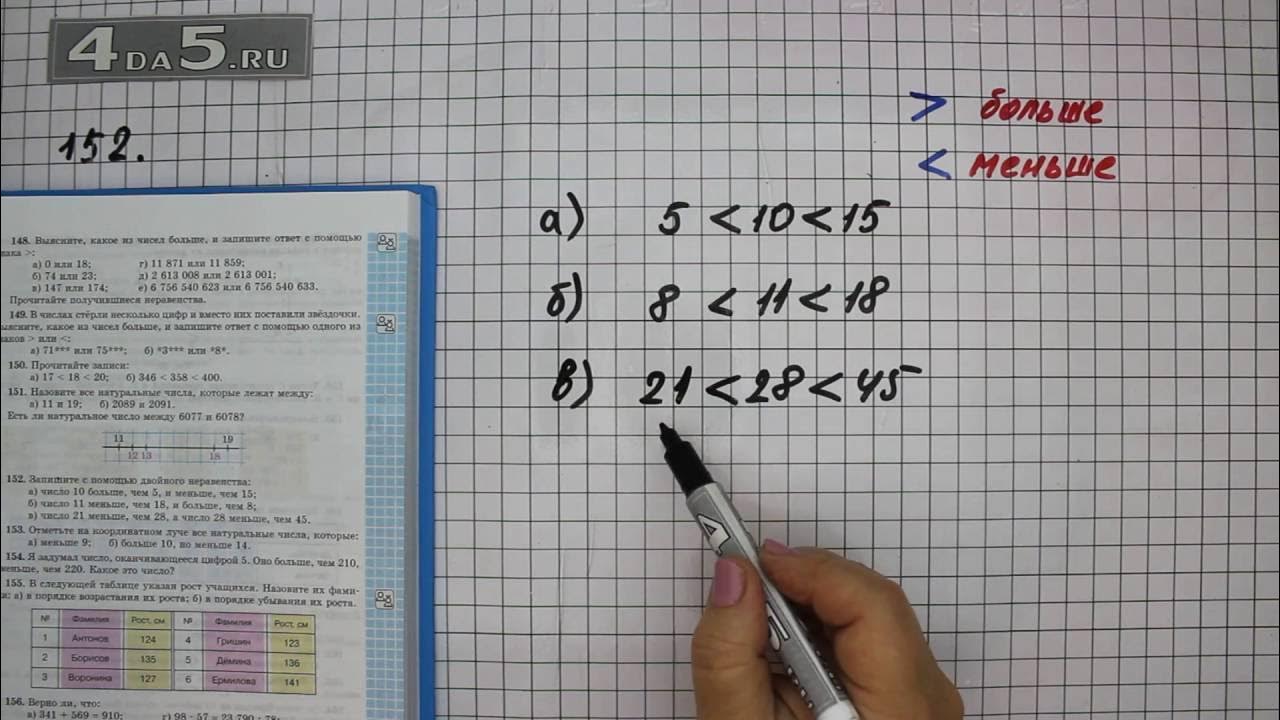 4DA5.RU
152.
> больше
< меньше
а) 5 < 10 < 15
б) 8 < 11 < 18
в) 21 < 28 < 45
148. Выясните, какое из чисел больше, и запишите ответ с помощью
знака >:
а) 0 или 18; г) 11 871 или 11 859;
б) 74 или 23; д) 2 613 008 или 2 613 001;
в) 147 или 174; е) 6 756 540 623 или 6 756 540 633.
Прочитайте получившиеся неравенства.
149. В числах стёрли несколько цифр и вместо них поставили звёздочки.
ыясните, какое из чисел больше, и запишите ответ с помощью одного из
наков > или <:
а) 71*** или 75***; б) *3*** или *8*.
150. Прочитайте записи:
а) 17 < 18 < 20; б) 346 < 358 < 400.
151. Назовите все натуральные числа, которые лежат между:
а) 11 и 19; б) 2089 и 2091.
Есть ли натуральное число между 6077 и 6078?
11 19
12 13 18
152. Запишите с помощью двойного неравенства:
а) число 10 больше, чем 5, и меньше, чем 15;
б) число 11 меньше, чем 18, и больше, чем 8;
в) число 21 меньше, чем 28, а число 28 меньше, чем 45.
153. Отметьте на координатном луче все натуральные числа, которые:
а) меньше 9; б) больше 10, но меньше 14.
154. Я задумал число, оканчивающееся цифрой 5. Оно больше, чем 210,
меньше, чем 220. Какое это число?
155. В следующей таблице указан рост учащихся. Назовите их фами-
и: а) в порядке возрастания их роста; б) в порядке убывания их роста.
№ Фамилия Рост, см № Фамилия Рост, см
1 Антонов 124 4 Гришин 123
2 Борисов 135 5 Дёмина 136
3 Воронина 127 6 Ермилова 141
156. Верно ли, что:
а) 341 + 569 = 910; г) 98 · 57 = 23 790 : 78;